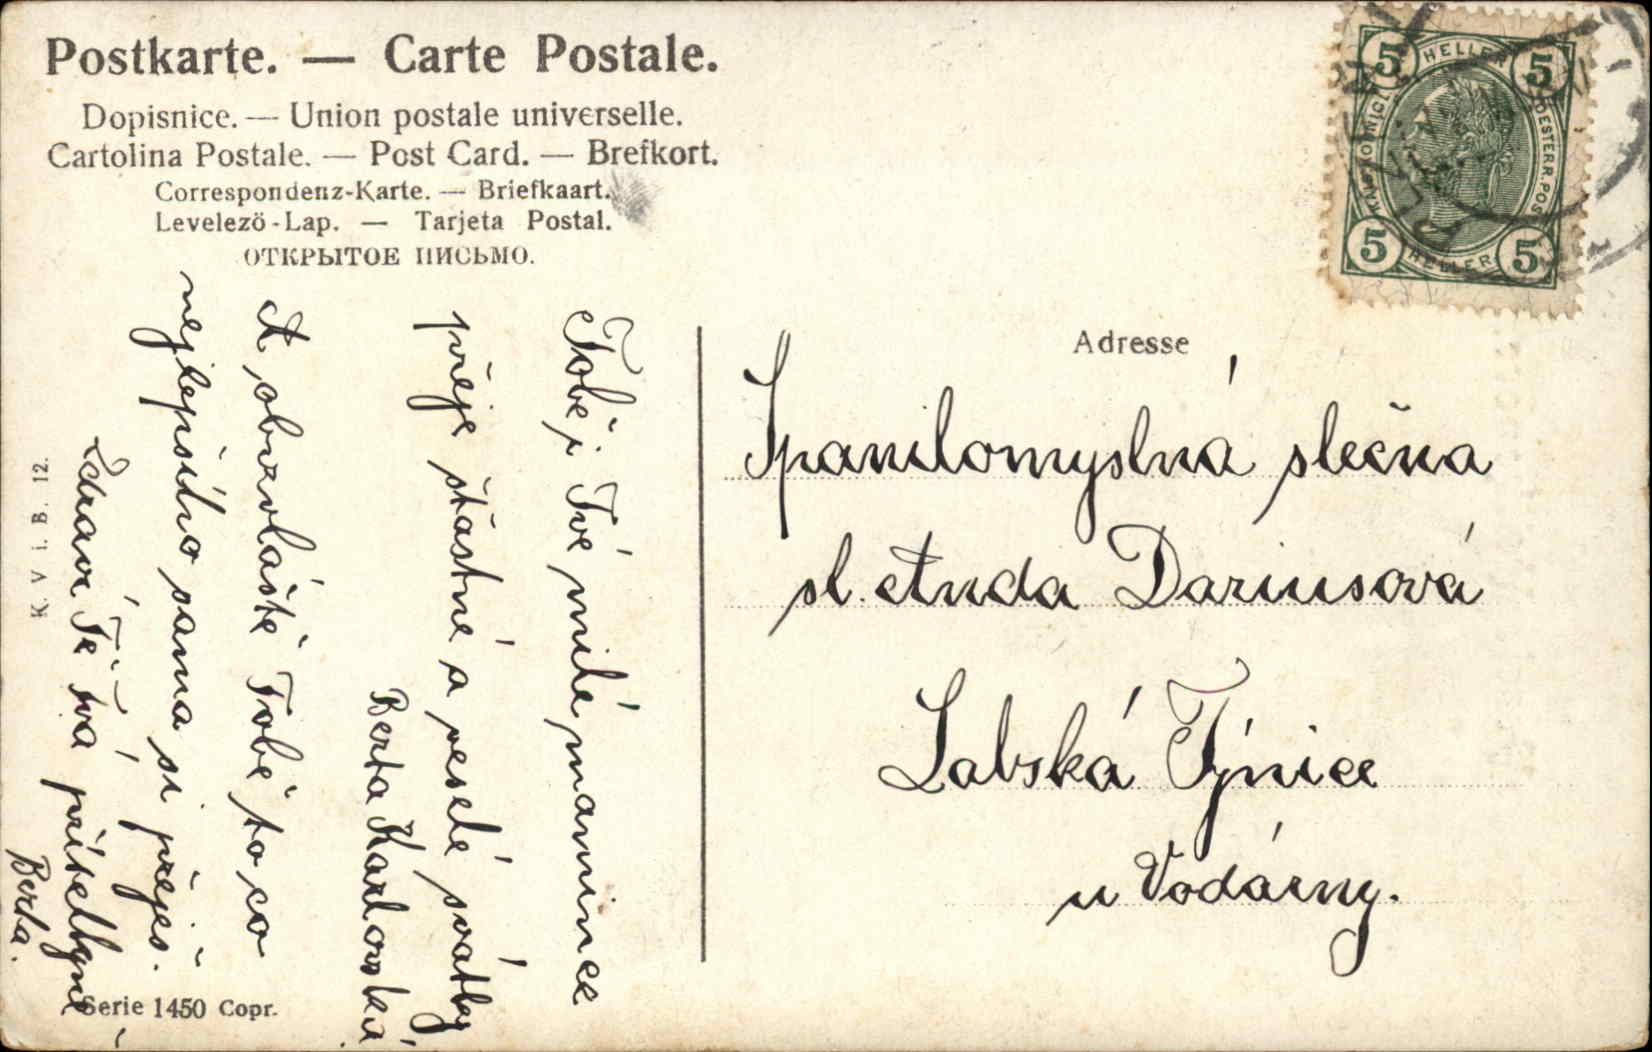 Postkarte. — Carte Postale.
Dopisnice. — Union postale universelle.
Cartolina Postale. — Post Card. — Brefkort.
Correspondenz-Karte. — Briefkaart.
Levelezö-Lap. — Tarjeta Postal.
ОТКРЫТОЕ ПИСЬМО.
5 HELLER 5
5 HELLER 5
Adresse
Spanilomyslná slečna
sl. Anda Dariusová
Labská Týnice
u Vodárny.
Tobě i Tvé milé mamince
přeje šťastné a veselé svátky
Berta Karlovská
A obzvláště Tobě to co
nejlepšího sama si přeješ.
Zdraví Tě tvá přítelkyně
Berta.
K. V. i. B. 12.
Serie 1450 Copr.